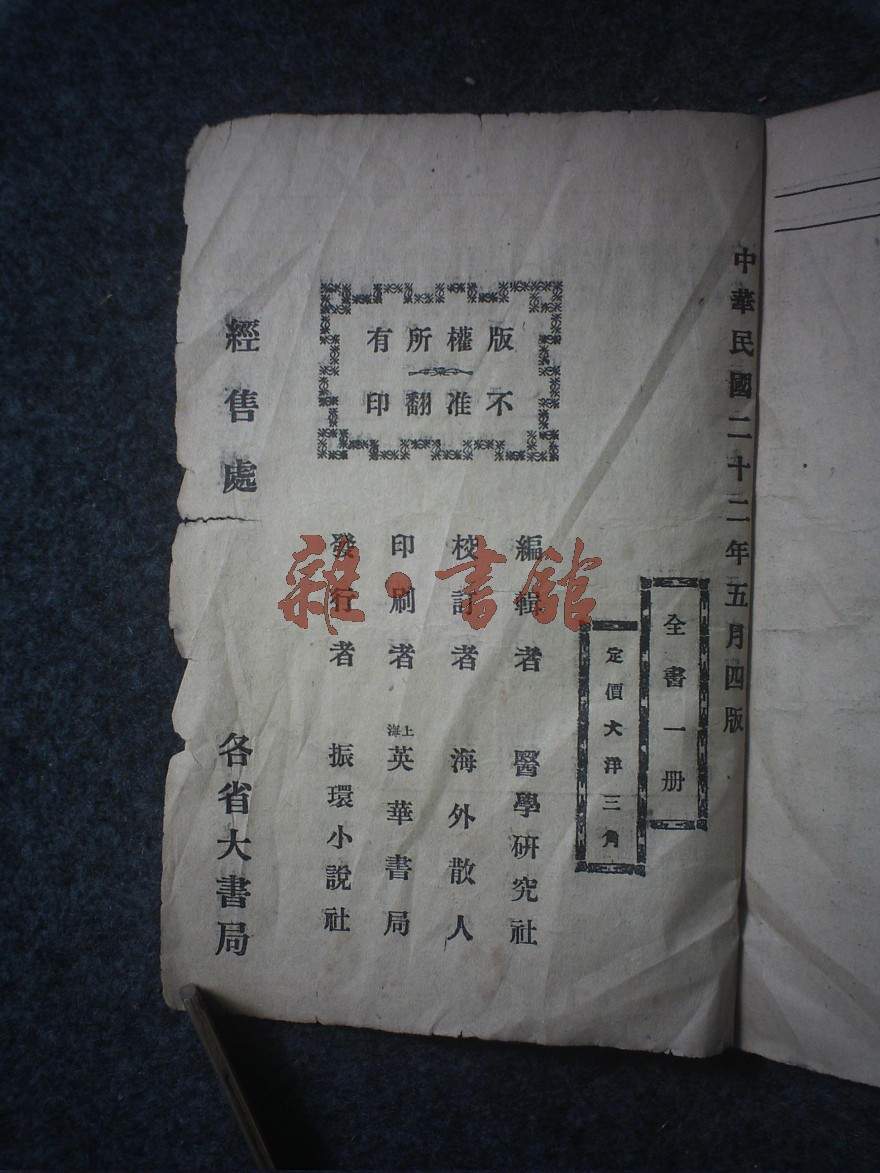 中華民國二十二年五月四版
全書一册
定價大洋三角
版權所有
不准翻印
編輯者 醫學研究社
校訂者 海外散人
印刷者 上海英華書局
發行者 振環小說社
經售處 各省大書局
雜·書館